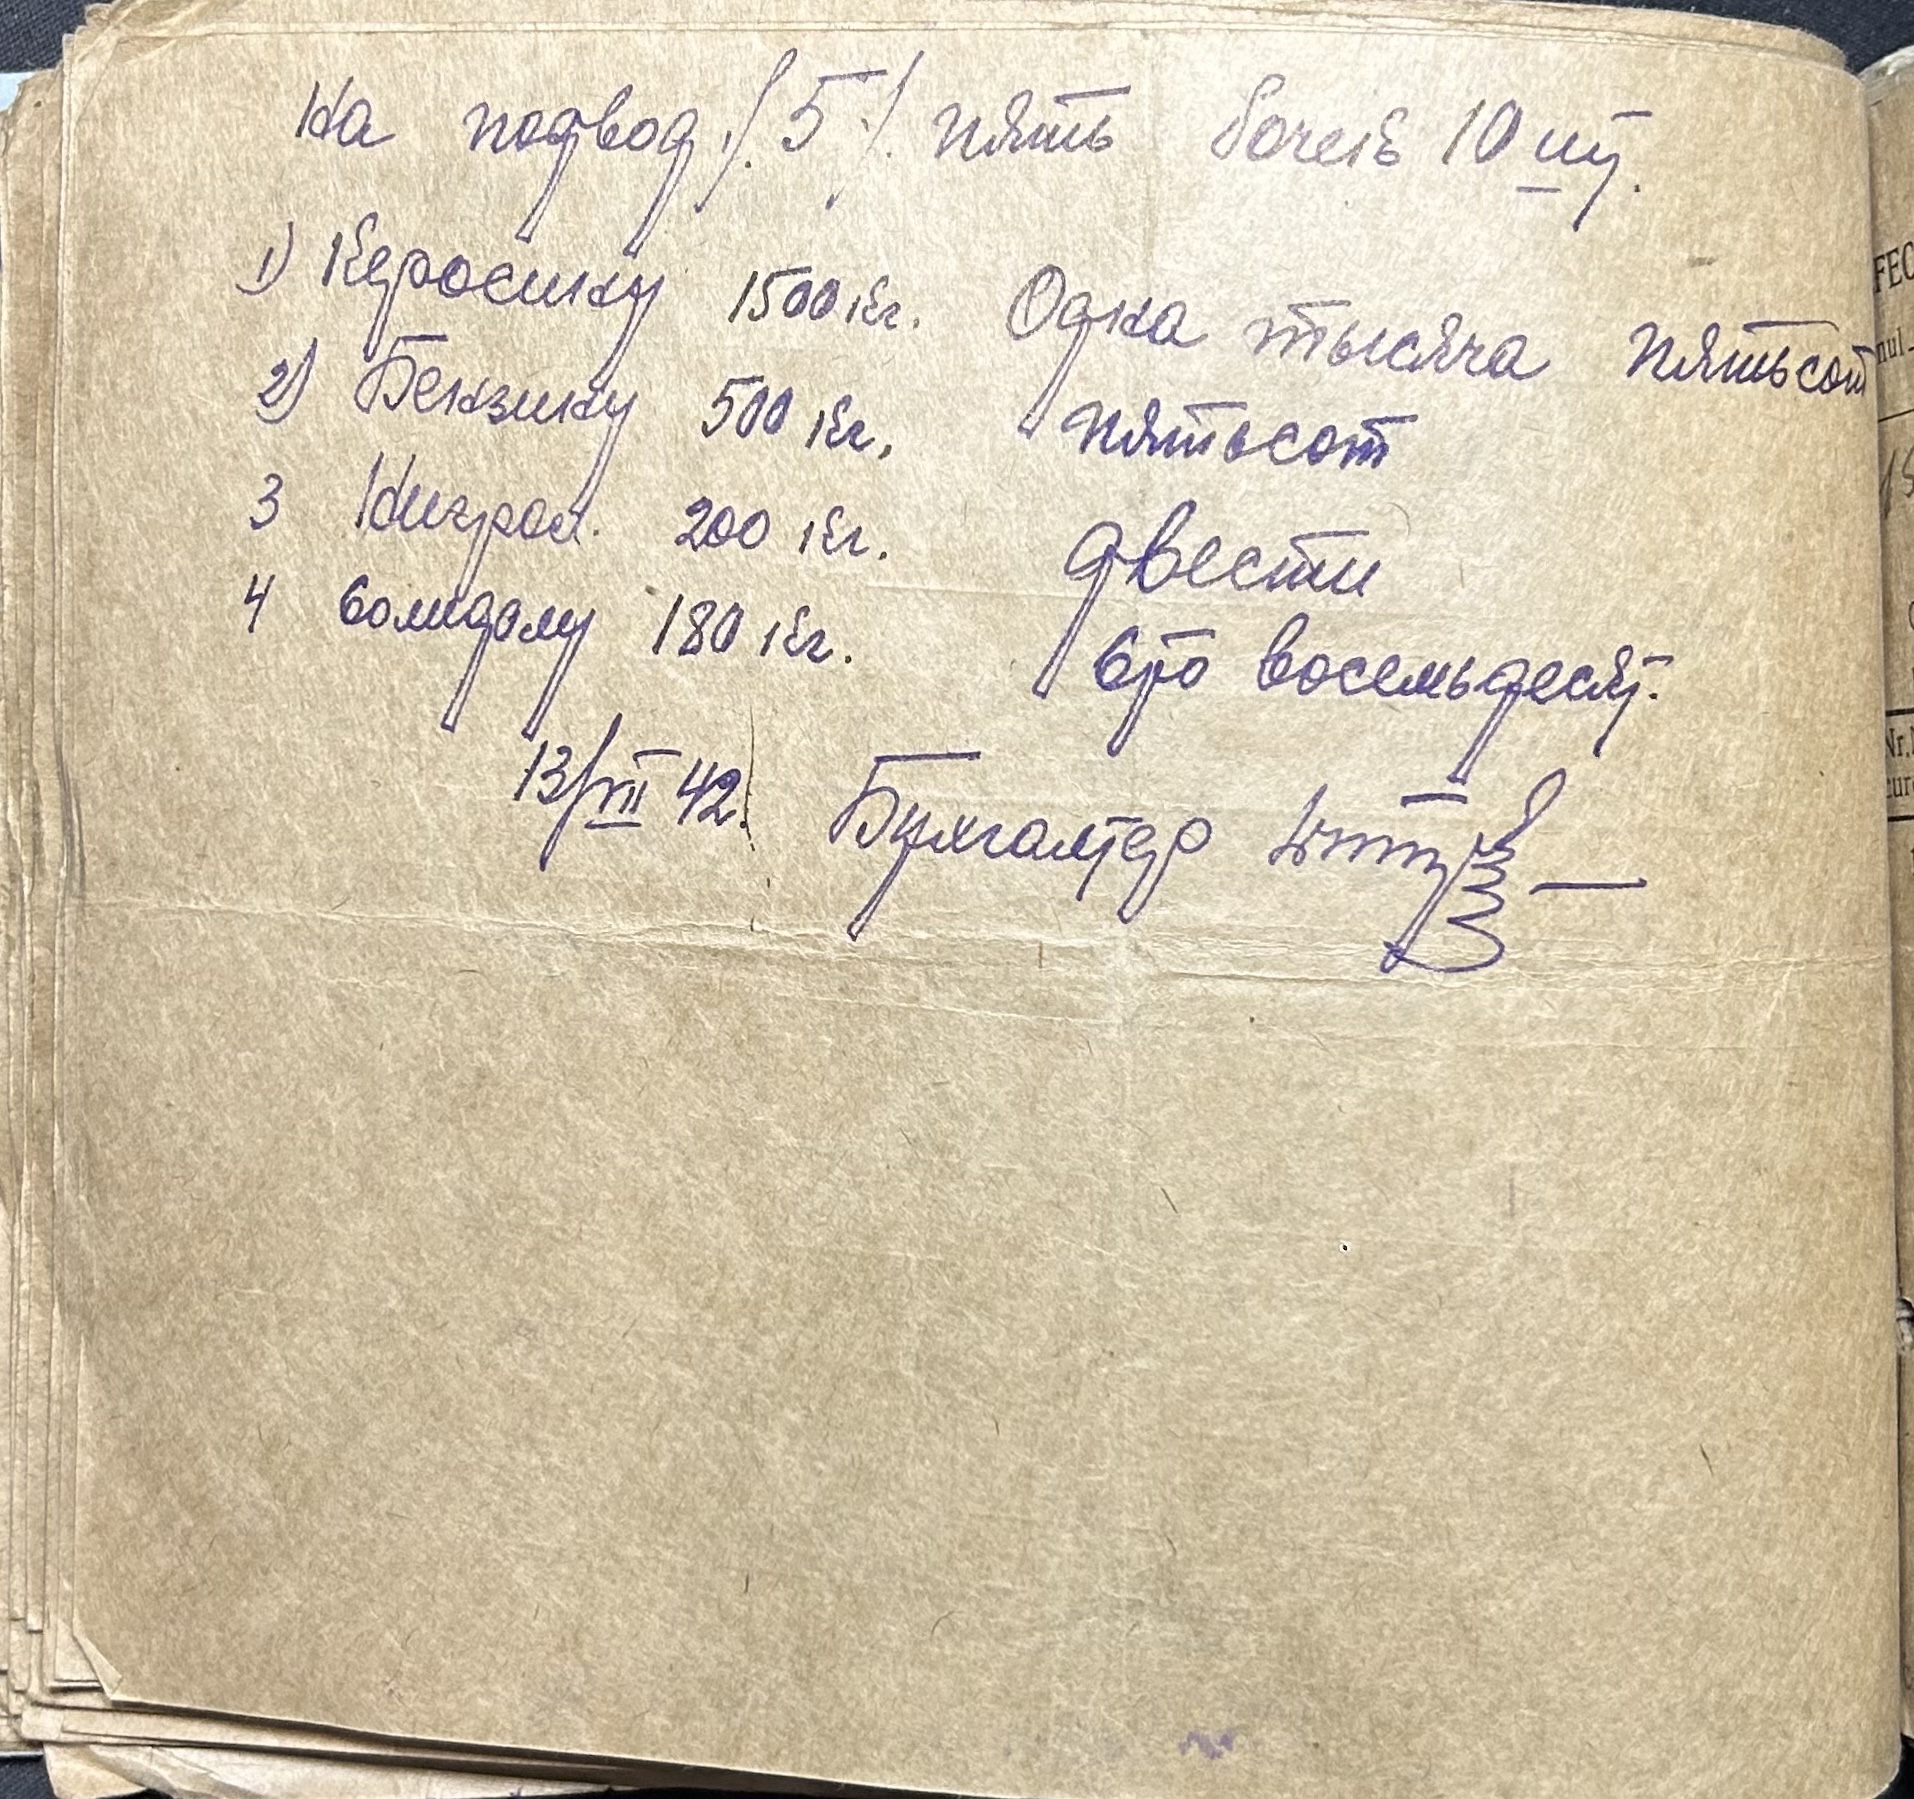 На подвод /.5./ пять бочек 10 шт.
1) Керосину 1500 кг. Одна тысяча пятьсот
2) Бензину 500 кг. пятьсот
3 Нигрол. 200 кг. двести
4 Солидолу 180 кг. сто восемьдесят.
13/VII 42. Бухгалтер